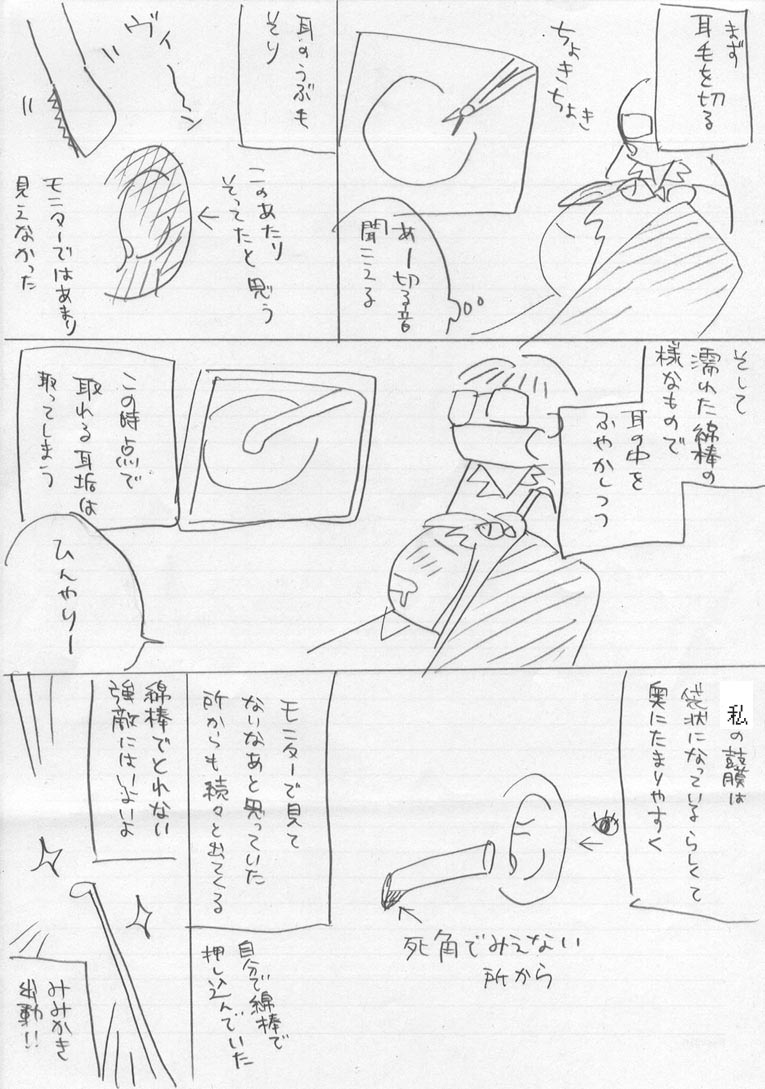 まず
耳毛を切る
ちょきちょき
あー切る音
聞こえる
耳のうぶ毛
そり
ヴィーーン
このあたり
そってたと思う
モニターではあまり
見えなかった
そして
濡れた綿棒の
様なもので
耳の中を
ふやかしつつ
この時点で
取れる耳垢は
取ってしまう
ひんやりー
私の鼓膜は
袋状になっているらしくて
奥にたまりやすく
死角でみえない
所から
モニターで見て
ないなあと思っていた
所からも続々と出てくる
自分で綿棒で
押し込んでいた
綿棒でとれない
強敵にはいよいよ
みみかき
出動!!